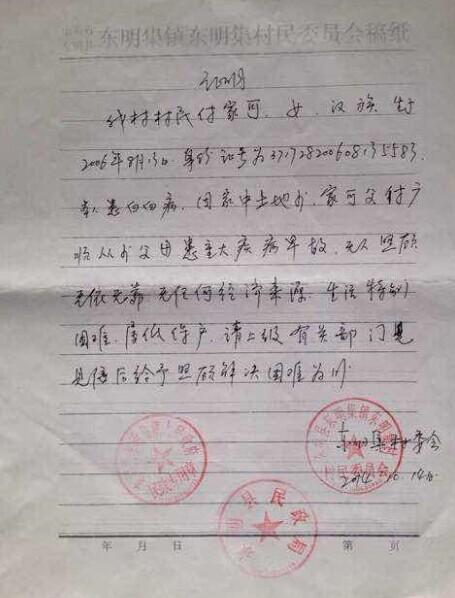 东明集镇东明集村民委员会稿纸
证明
我村村民付家可，女，汉族，生于
2006年8月13日，身份证号为371728200608135583，
本人患白血病，因家中土地少，家可父付广
从小父因患重大疾病早故，无人照顾
无依无靠，无任何经济来源，生活特别
困难，属低保户，请上级有关部门见
见信后给予照顾解决困难为盼
东明集镇东明集
村民委员会
东明集村委会
2014.10.14日
东明县民政局
年 月 日 第 页